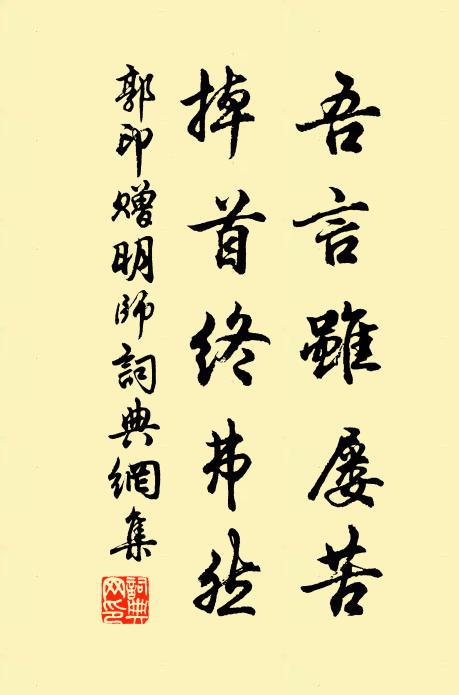 吾言雖屡苦
掉首終弗然
郭印贈明師詞典網集
詞典网印